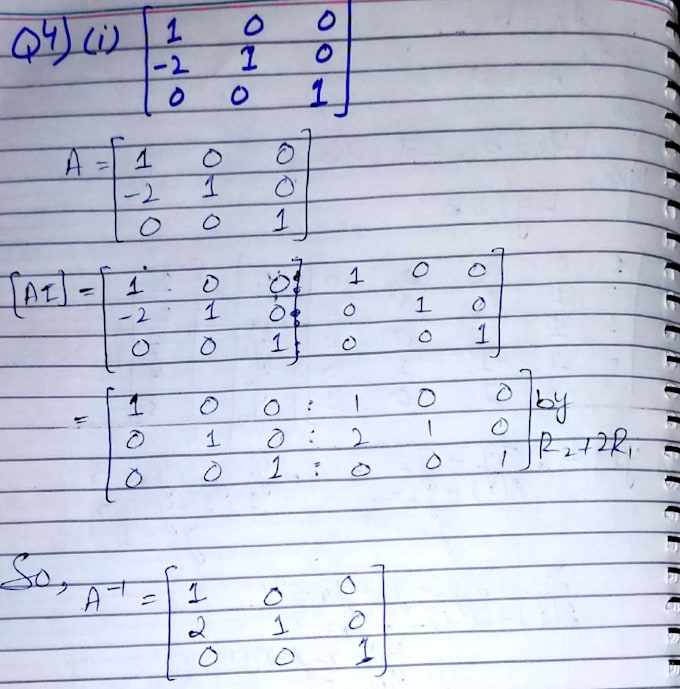 Q4) (i) [ 1 0 0
-2 1 0
0 0 1 ]
A = [ 1 0 0
-2 1 0
0 0 1 ]
[AI] = [ 1 0 0 : 1 0 0
-2 1 0 : 0 1 0
0 0 1 : 0 0 1 ]
= [ 1 0 0 : 1 0 0 ] by
0 1 0 : 2 1 0
0 0 1 : 0 0 1 ] R₂+2R₁
So, A⁻¹ = [ 1 0 0
2 1 0
0 0 1 ]